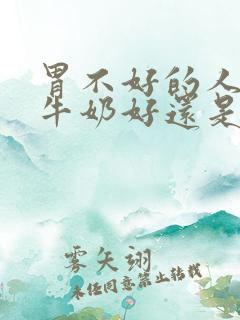 胃不好的人
牛奶好還是
雾矢翊
未经同意禁止转载